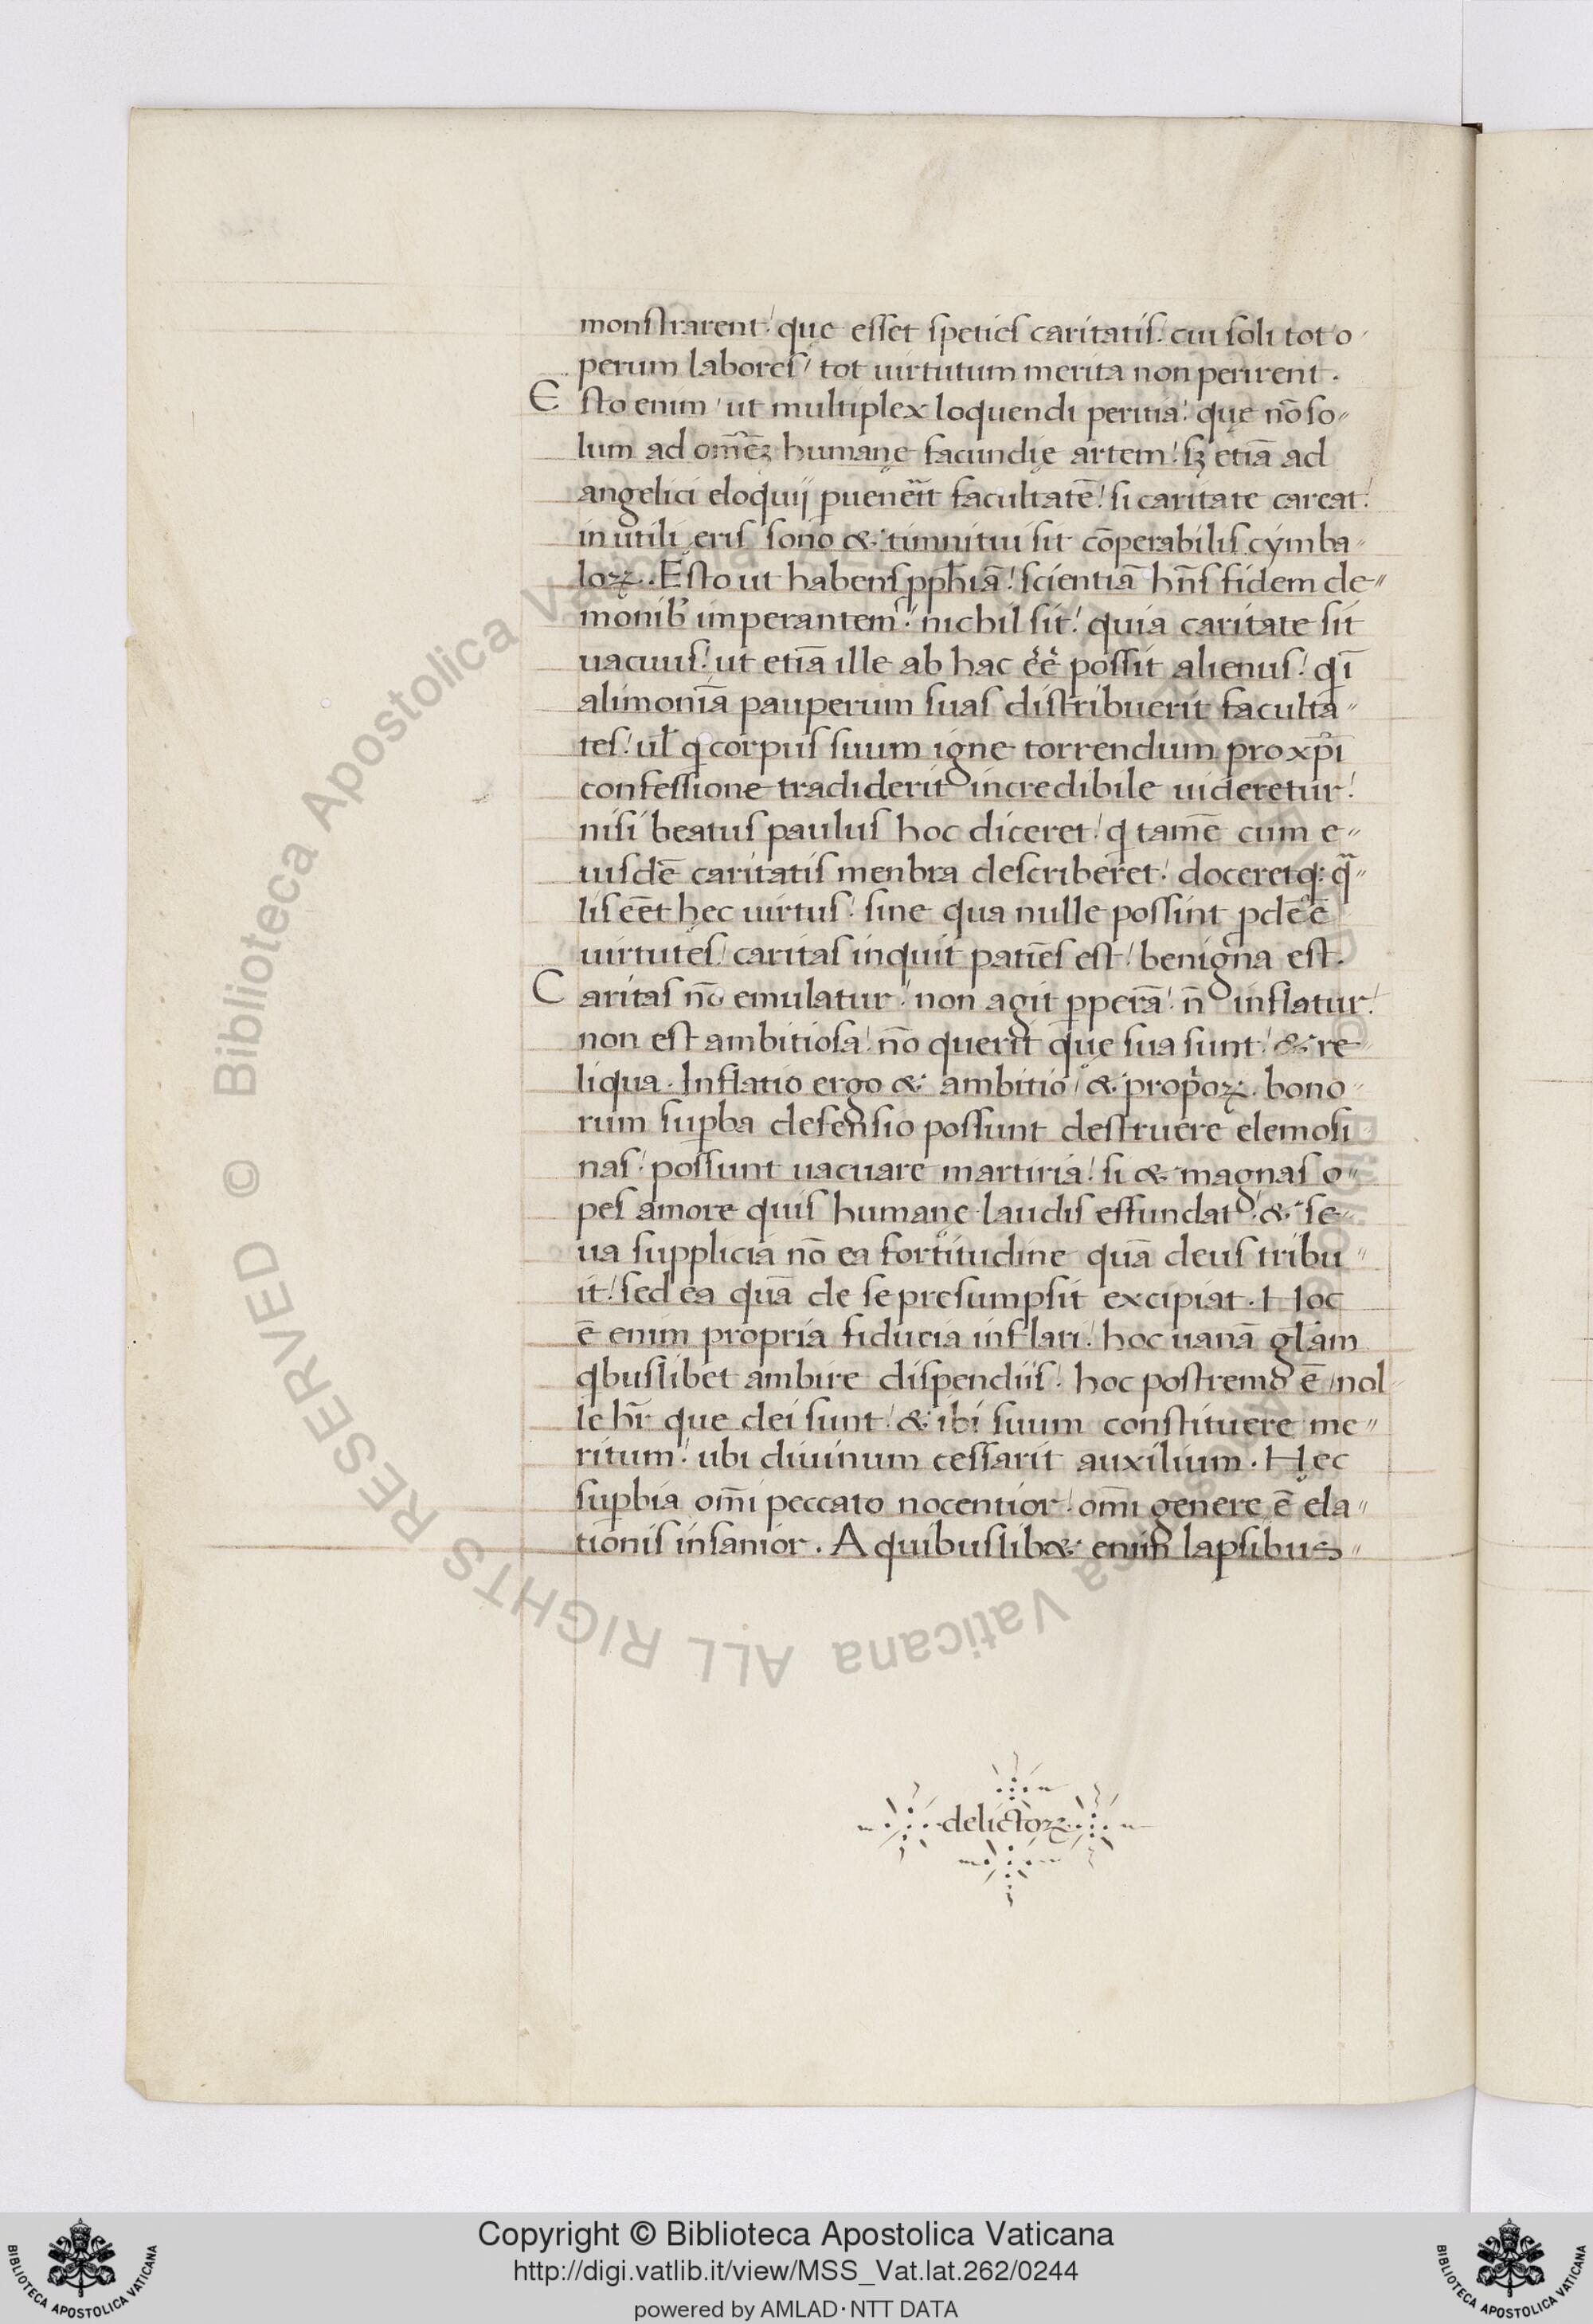 monstrarent! quę esset speties caritatis. cui soli tot o-
perum labores! tot uirtutum merita non perirent.
Esto enim! ut multiplex loquendi peritia! quę nō so-
lum ad om̄ēꝫ humanę facundię artem! sꝫ etiā ad
angelici eloquij ꝑuen̄it facultatē! si caritate careat!
inutili ęris sono & tinnitui sit cōperabilis cymba-
loꝝ. Esto ut habens ꝓph̄iā! scientiā hn̄s fidem de-
monibꝰ imperantem! nichil sit! quia caritate sit
uacuus! ut etiā ille ab hac ēē possit alienus! q ī
alimoniā pauperum suas distribuerit faculta-
tes! ul̄ q corpus suum igne torrendum pro xp̄i
confessione tradiderit incredibile uideretur!
nisi beatus paulus hoc diceret! q tamē cum e-
iusdē caritatis menbra describeret. doceretq: qa-
lis eēt hęc uirtus. sine qua nulle possint ꝓdēē
uirtutes! caritas inquit patiēs est! benigna est.
Caritas nō emulatur! non agit ꝑperā! n̄ inflatur!
non est ambitiosa! nō querit quę sua sunt! & re-
liqua. Inflatio ergo & ambitio! & propoꝝ. bono-
rum suꝑba defensio possunt destruere elemosi
nas! possunt uacuare martiria! si & magnas o-
pes amore quis humanę laudis effundat! & sę-
ua supplicia nō ea fortitudine quā deus tribu-
it! sed ea quā de se presumpsit excipiat. Hoc
ē enim propria fiducia inflari! hoc uanā gl̄am
qbuslibet ambire dispendiis! hoc postremo ē nol-
le hr̄e que dei sunt! & ibi suum constituere me-
ritum! ubi diuinum cessarit auxilium. Hęc
suꝑbia om̄i peccato nocentior! om̄i genere ē ela-
tionis insanior. A quibuslib& enim lapsibus-
delictoꝝ.
© Biblioteca Apostolica Vaticana ALL RIGHTS RESERVED
Copyright © Biblioteca Apostolica Vaticana
http://digi.vatlib.it/view/MSS_Vat.lat.262/0244
powered by AMLAD·NTT DATA
BIBLIOTECA APOSTOLICA VATICANA
BIBLIOTECA APOSTOLICA VATICANA